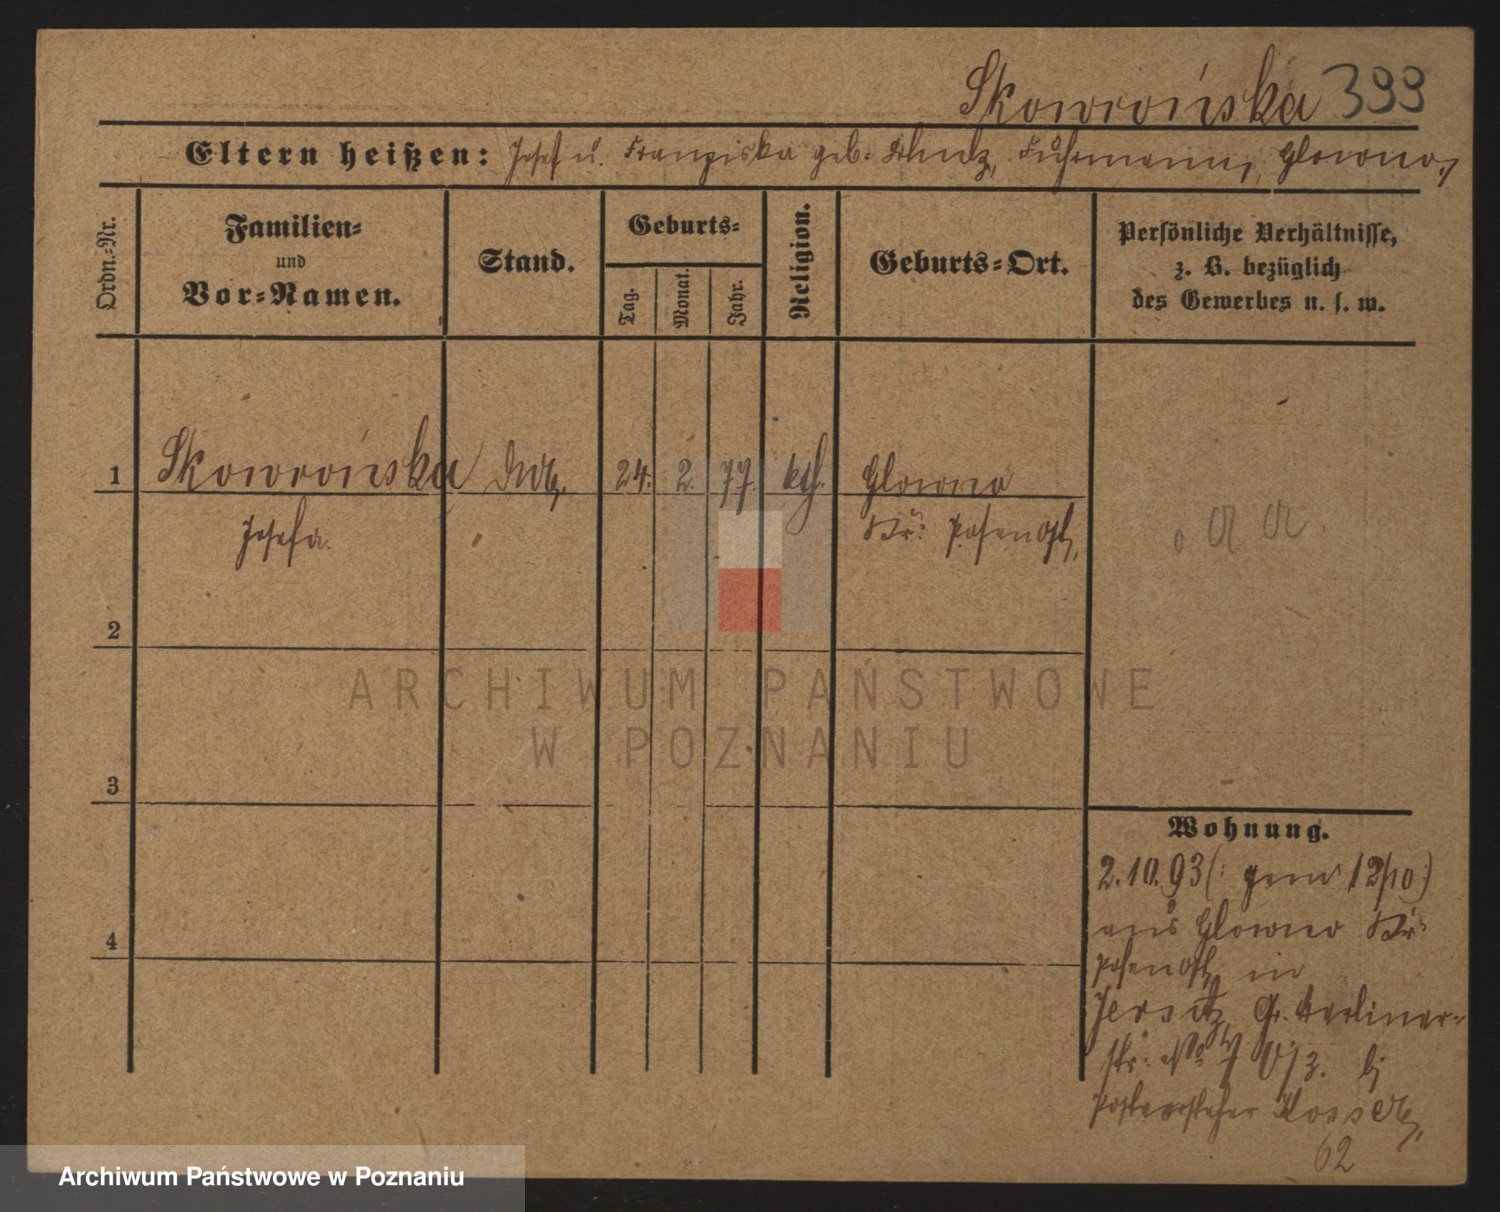 Skowrońska 399
Eltern heißen: Josef u. Franziska geb. Fuhrmann, Glowno,
Ordn.-Nr.
Familien-
und
Vor-Namen.
Stand.
Geburts-
Tag.
Monat.
Jahr.
Religion.
Geburts-Ort.
Persönliche Verhältnisse,
z. B. bezüglich
des Gewerbes u. s. w.
1 Skowrońska 24. 2. 77. kth. Glowno
Josefa. Kr: Posen Ost,
2
3
4
Wohnung.
2.10.93 (: gem 12/10:)
aus Glowno Kr:
Posen Ost, in
Jersitz, Gr. Berliner-
str: No
Postvorsteher
62
ARCHIWUM PAŃSTWOWE
W POZNANIU
Archiwum Państwowe w Poznaniu